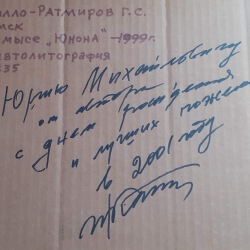 илло-Ратмиров Г.С.
мск
мысе „Юнона" -1999г.
автолитография
35
Юрию Михайловичу
от автора
с днем рождения
и лучших пожела
в 2001 году